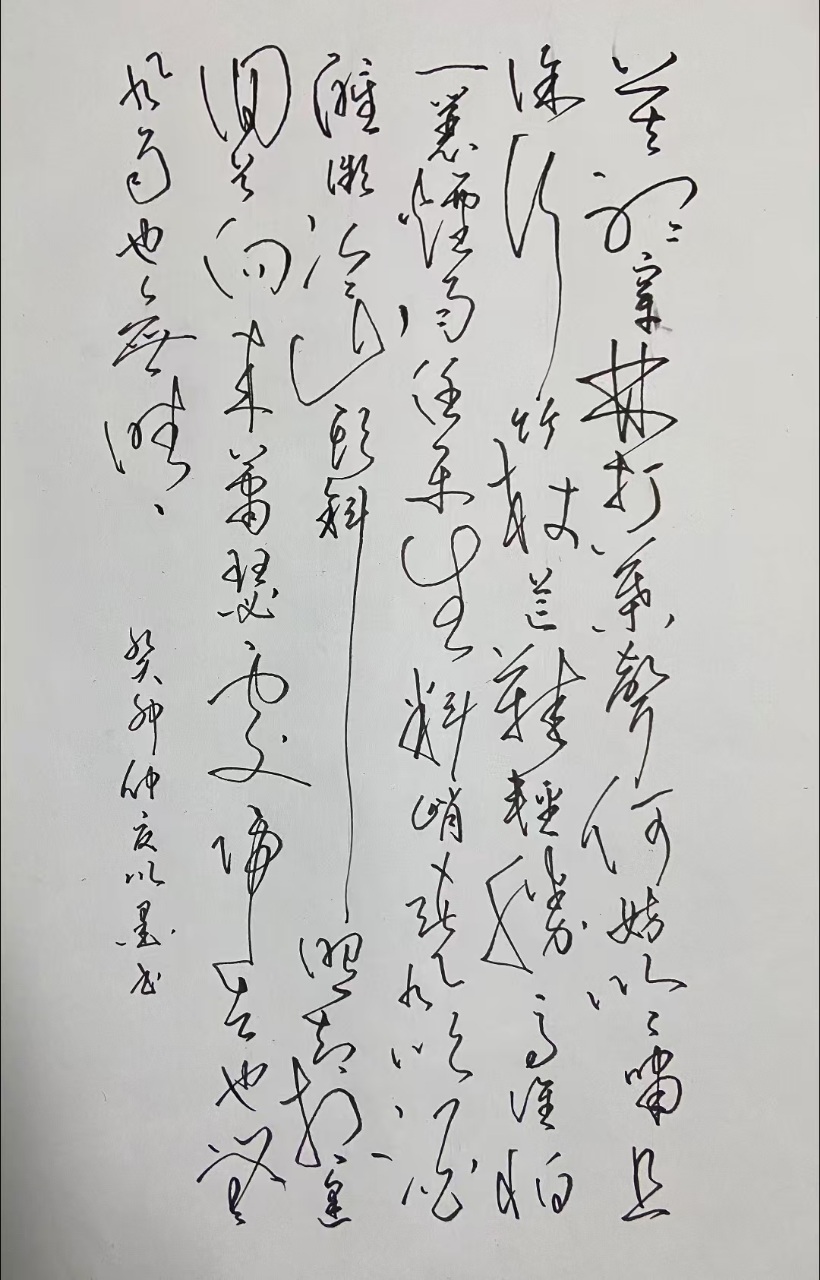 莫聽穿林打葉聲何妨吟嘯且
徐行竹杖芒鞋輕勝馬誰怕
一蓑煙雨任平生料峭春風吹酒
醒微冷山頭斜照却相迎
回首向來蕭瑟處歸去也無
風雨也無晴
癸卯仲夏以墨書